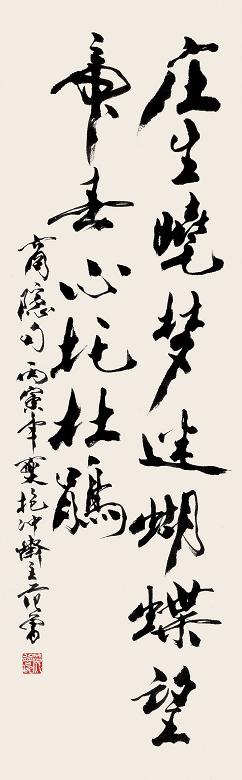 庄生曉梦迷蝴蝶望
帝春心托杜鵑
商隐句丙寅年夏抱冲齋主范曾